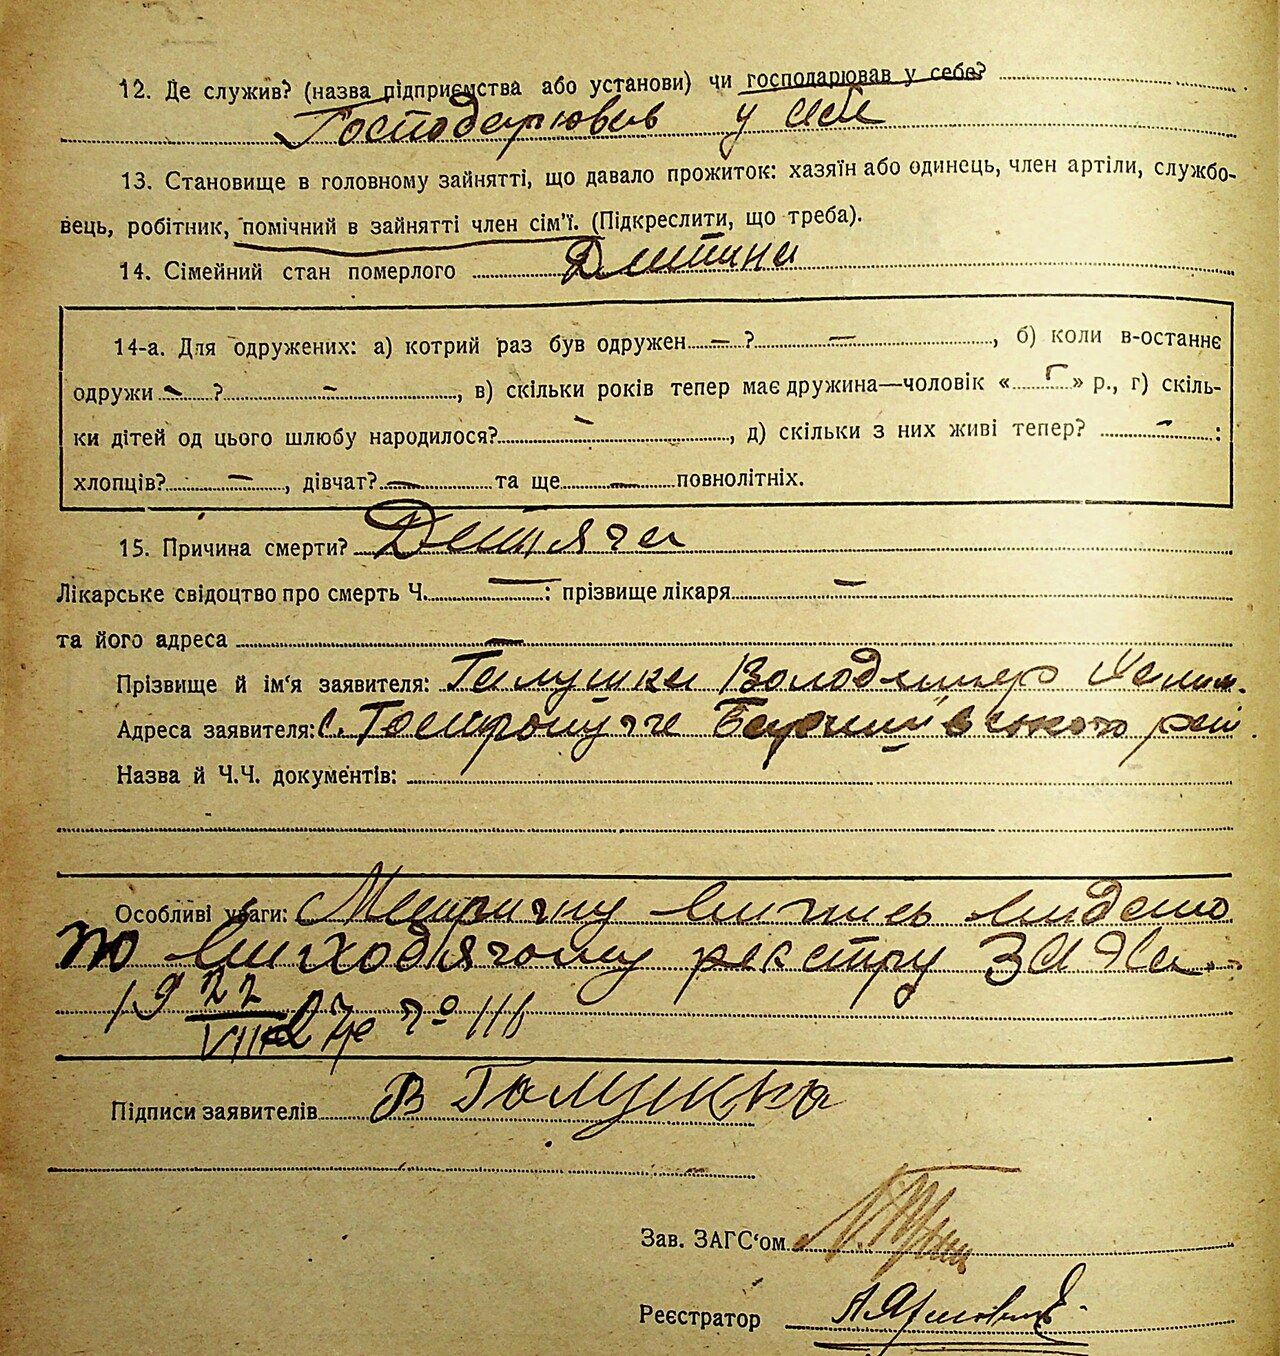 12. Де служив? (назва підприємства або установи) чи господарював у себе?
Господарював у себе
13. Становище в головному зайнятті, що давало прожиток: хазяїн або одинець, член артіли, службо-
вець, робітник, помічний в зайнятті член сім'ї. (Підкреслити, що треба).
14. Сімейний стан померлого Дитина
14-а. Для одружених: а) котрий раз був одружен — ? —, б) коли в-останнє
одружи — ? —, в) скільки років тепер має дружина—чоловік « » р., г) скіль-
ки дітей од цього шлюбу народилося? —, д) скільки з них живі тепер? — :
хлопців? —, дівчат? — та ще — повнолітніх.
15. Причина смерти? Дитяча
Лікарське свідоцтво про смерть Ч. — : прізвище лікаря —
та його адреса —
Прізвище й ім'я заявителя: Галушка Володимир
Адреса заявителя: с. Баришівського рай.
Назва й Ч.Ч. документів:
Особливі уваги: Метричну випись видано
по виходячому реєстру ЗАГСа
19 22/VIII 27 № 111
Підписи заявителів В Галушка
Зав. ЗАГС'ом
Реєстратор